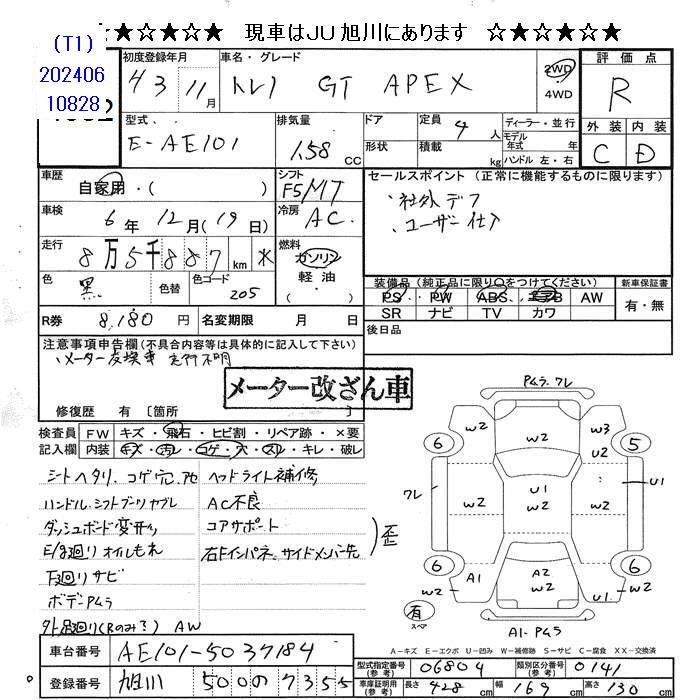 ☆★☆★☆ 現車はJU旭川にあります ☆★☆★☆
(T1)
202406
10828
初度登録年月
43 11月
車名・グレード
トレノ GT APEX
2WD
・
4WD
評価点
R
型式
E-AE101
排気量
1.58 cc
ドア
形状
定員 4人
積載 kg
ディーラー・並行
モデル
年式 年
ハンドル 左・右
外装 内装
C D
車歴
自家用・( )
シフト
F5 MT
セールスポイント (正常に機能するものに限ります)
・社外デフ
・ユーザー仕入
車検
6年 12月(19日)
冷房
AC.
走行
8万5千887km ※
燃料
ガソリン
・
軽油
色
黒
色替
色コード
205
装備品(純正品に限り○をつけてください)
新車保証書
PS PW ABS エアB AW
SR ナビ TV カワ
有・無
R券 8,180円
名変期限 月 日
後日品
注意事項申告欄(不具合内容等は具体的に記入して下さい)
・メーター交換車 走行不明
メーター改ざん車
修復歴 有〔箇所 〕
検査員
記入欄
FW キズ・飛石・ヒビ割・リペア跡・×要
内装 キズ・汚レ・コゲ・穴・スレ・キレ・破レ
シートヘタリ、コゲ穴、他 ヘッドライト補修
ハンドル、シフトブーツヤブレ AC不良
ダッシュボード変形り コアサポート
E/G廻りオイルもれ 右Fインパネ、サイドメンバー先
歪
下廻りサビ
ボデーPムラ
AW
Pムラ.ワレ
W2
W2
W3
W2
6
5
ワレ
W2
U1
W2
W2
U1
6
6
A1
W2
A2
W2
U1.
W2
W2
有
スペア
A1.Pムラ
A-キズ E-エクボ U-凹み W-補修跡 S-サビ C-腐食 XX-交換済
車台番号 AE101-5037184
型式指定番号
(参考)
06804
類別区分番号
(参考)
0141
登録番号 旭川 500の7355
車庫証明用
(参考)
長さ 428cm 幅 169cm 高さ 130cm